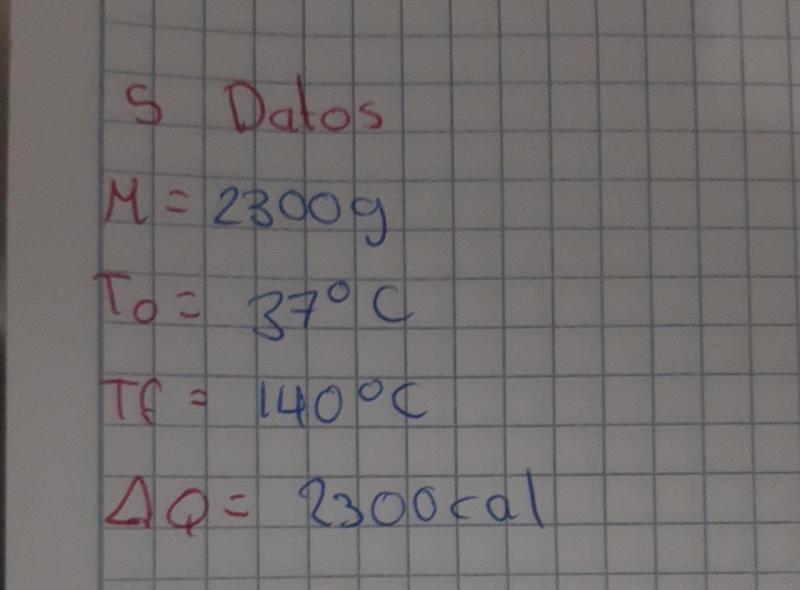 5 Datos
M = 2300g
To = 37°C
Tf = 140°C
ΔQ = 2300cal